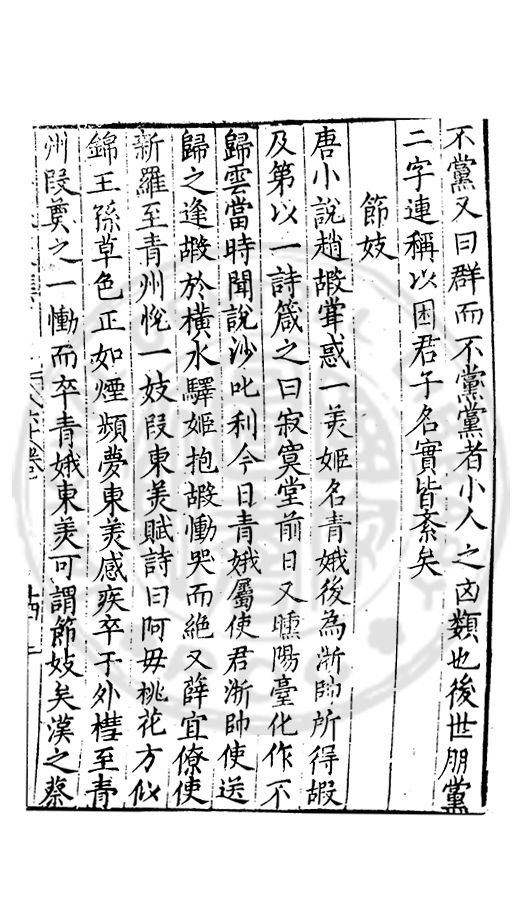 不黨又曰群而不黨黨者小人之凶類也後世朋黨
二字連稱以困君子名實皆紊矣
節妓
唐小說趙嘏甞惑一美姬名青娥後為浙帥所得嘏
及第以一詩箴之曰寂寞堂前日又曛陽臺化作不
歸雲當時聞說沙叱利今日青娥屬使君浙帥使送
歸之逢嘏於橫水驛姬抱嘏慟哭而絕又薛宜僚使
新羅至青州恱一妓叚東美賦詩曰阿毋桃花方似
錦王孫草色正如煙頻夢東美感疾卒于外櫘至青
州叚奠之一慟而卒青娥東美可謂節妓矣漢之蔡